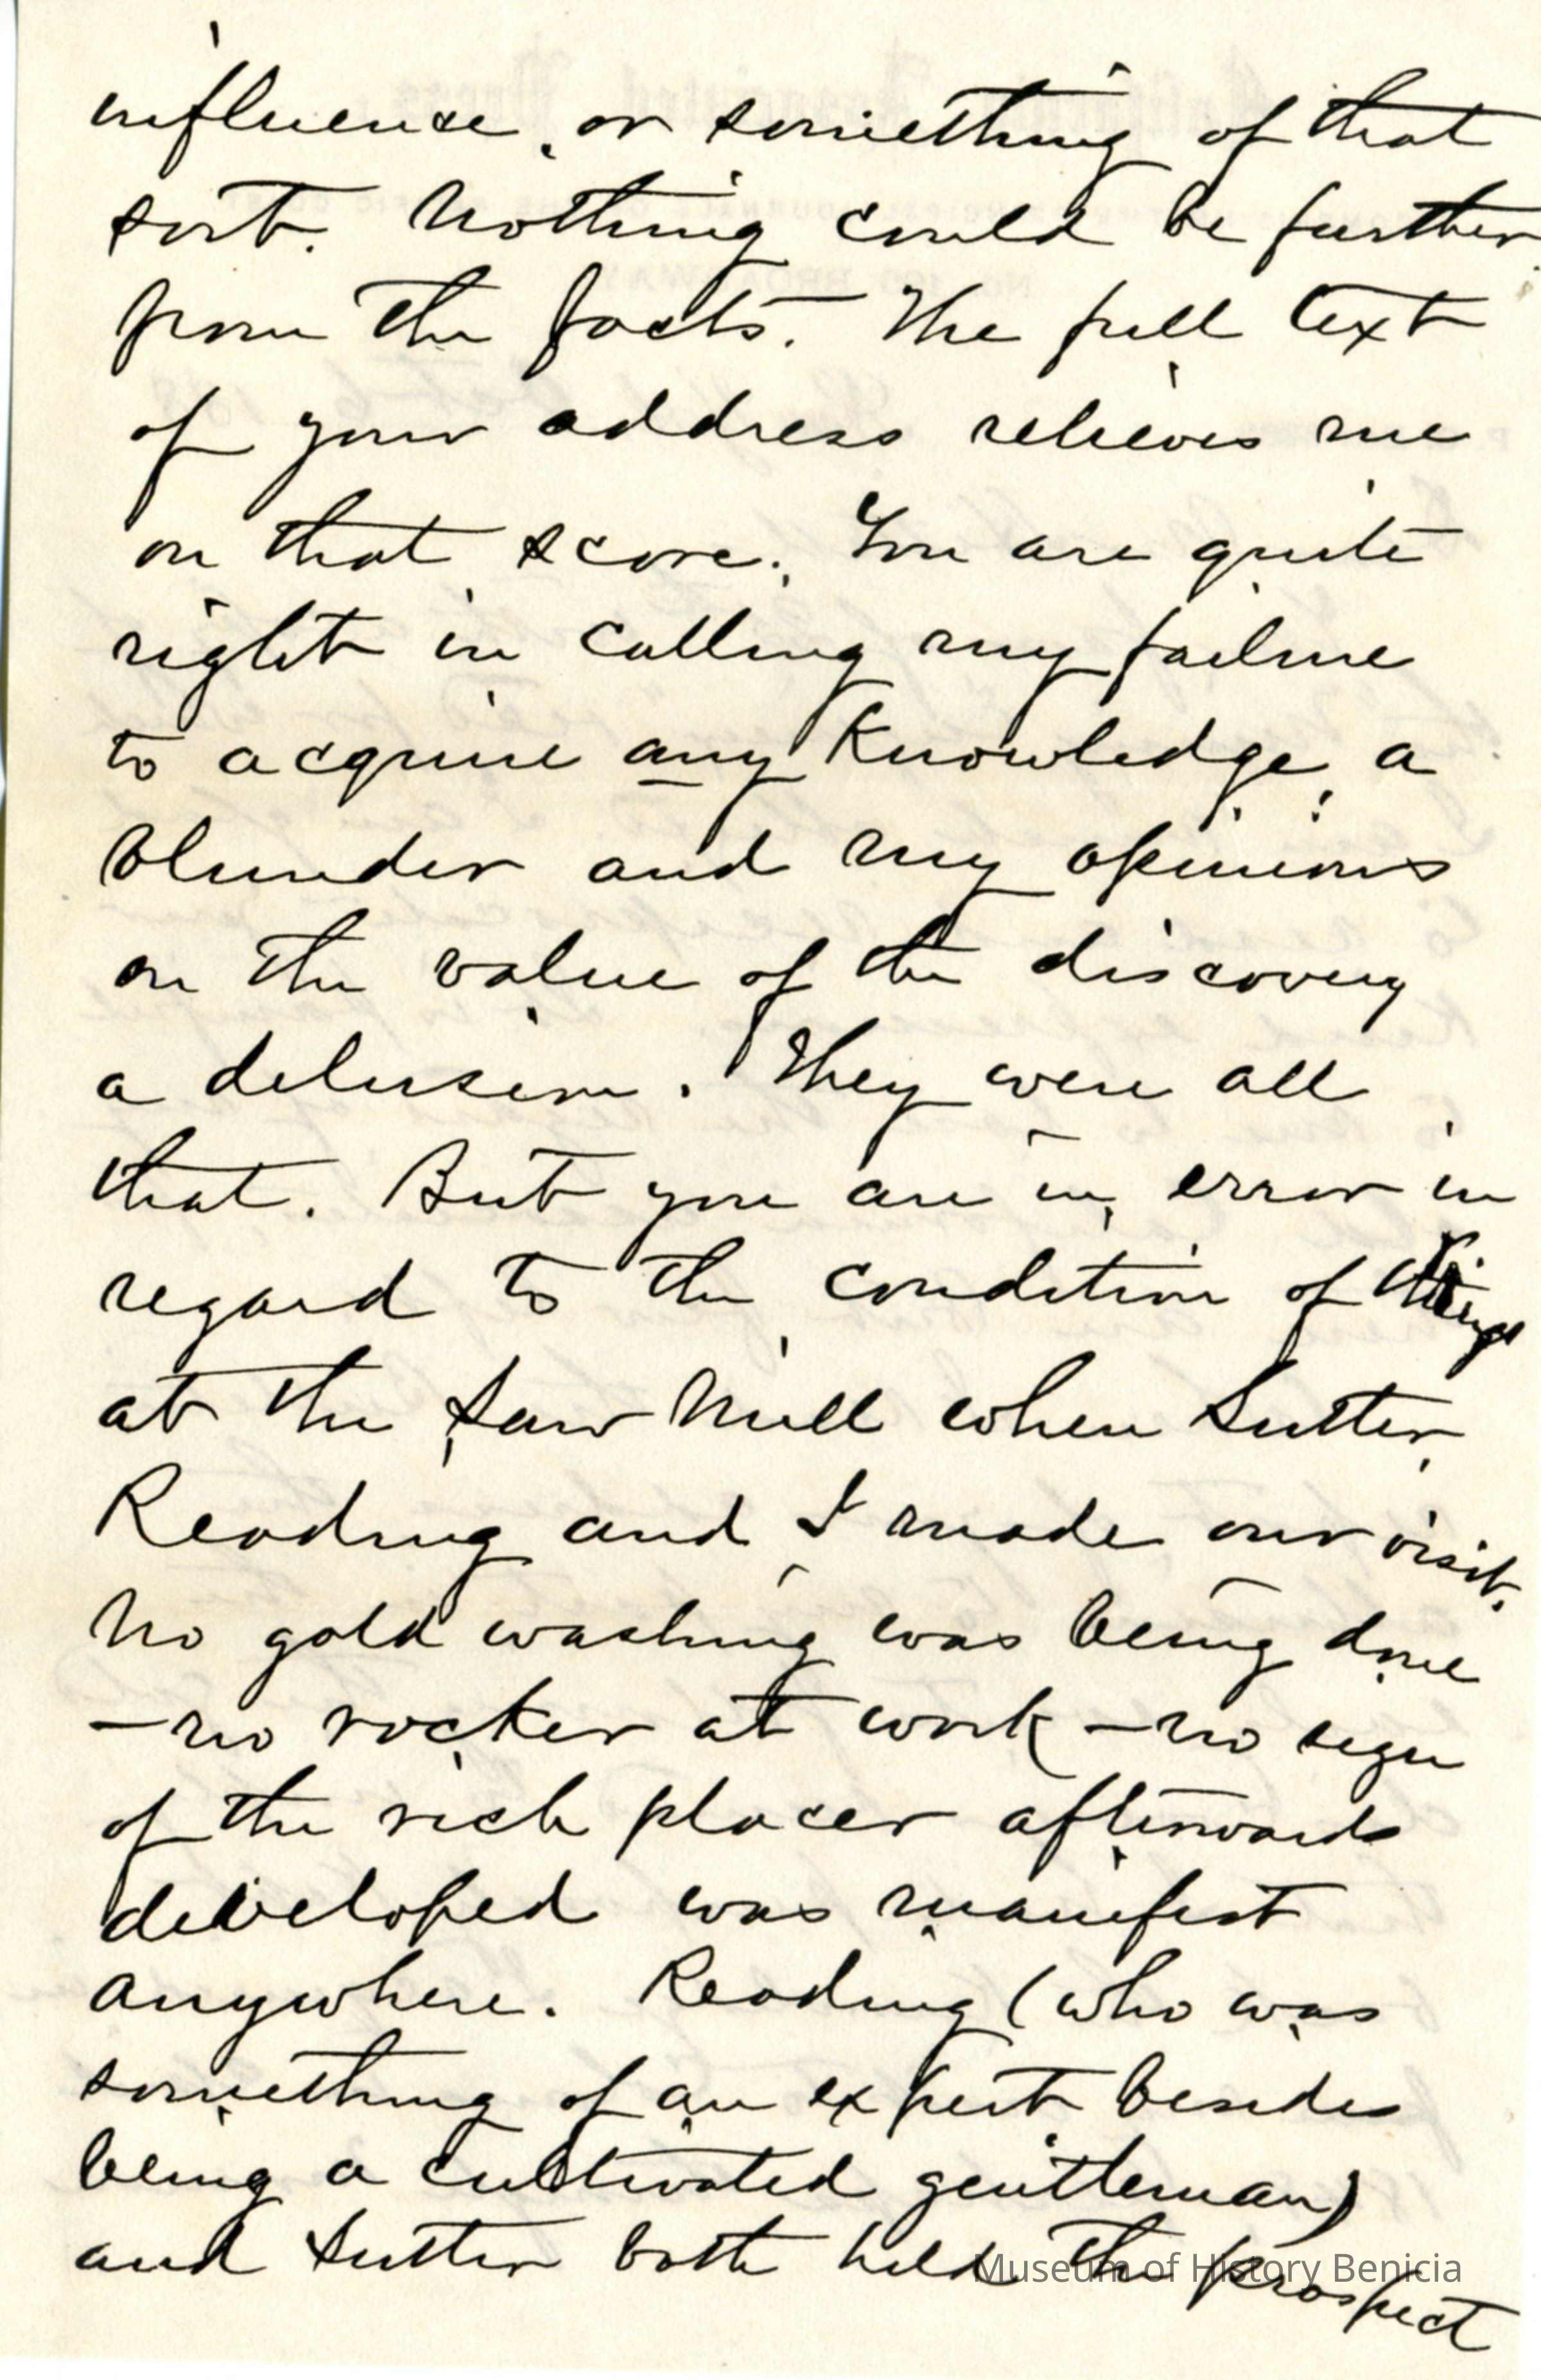 influence, or something of that
sort. Nothing could be further
from the facts. The full text
of your address relieves me
on that score. You are quite
right in calling my failure
to acquire any knowledge, a
blunder and my opinions
on the value of the discovery
a delusion. They were all
that. But you are in error in
regard to the condition of things
at the Saw Mill when Sutter,
Reading and I made our visit.
No gold washing was being done
—no rocker at work—no sign
of the rich placer afterwards
developed was manifest
anywhere. Reading (who was
something of an expert besides
being a cultivated gentleman)
and Sutter both held the prospect
Museum of History Benicia